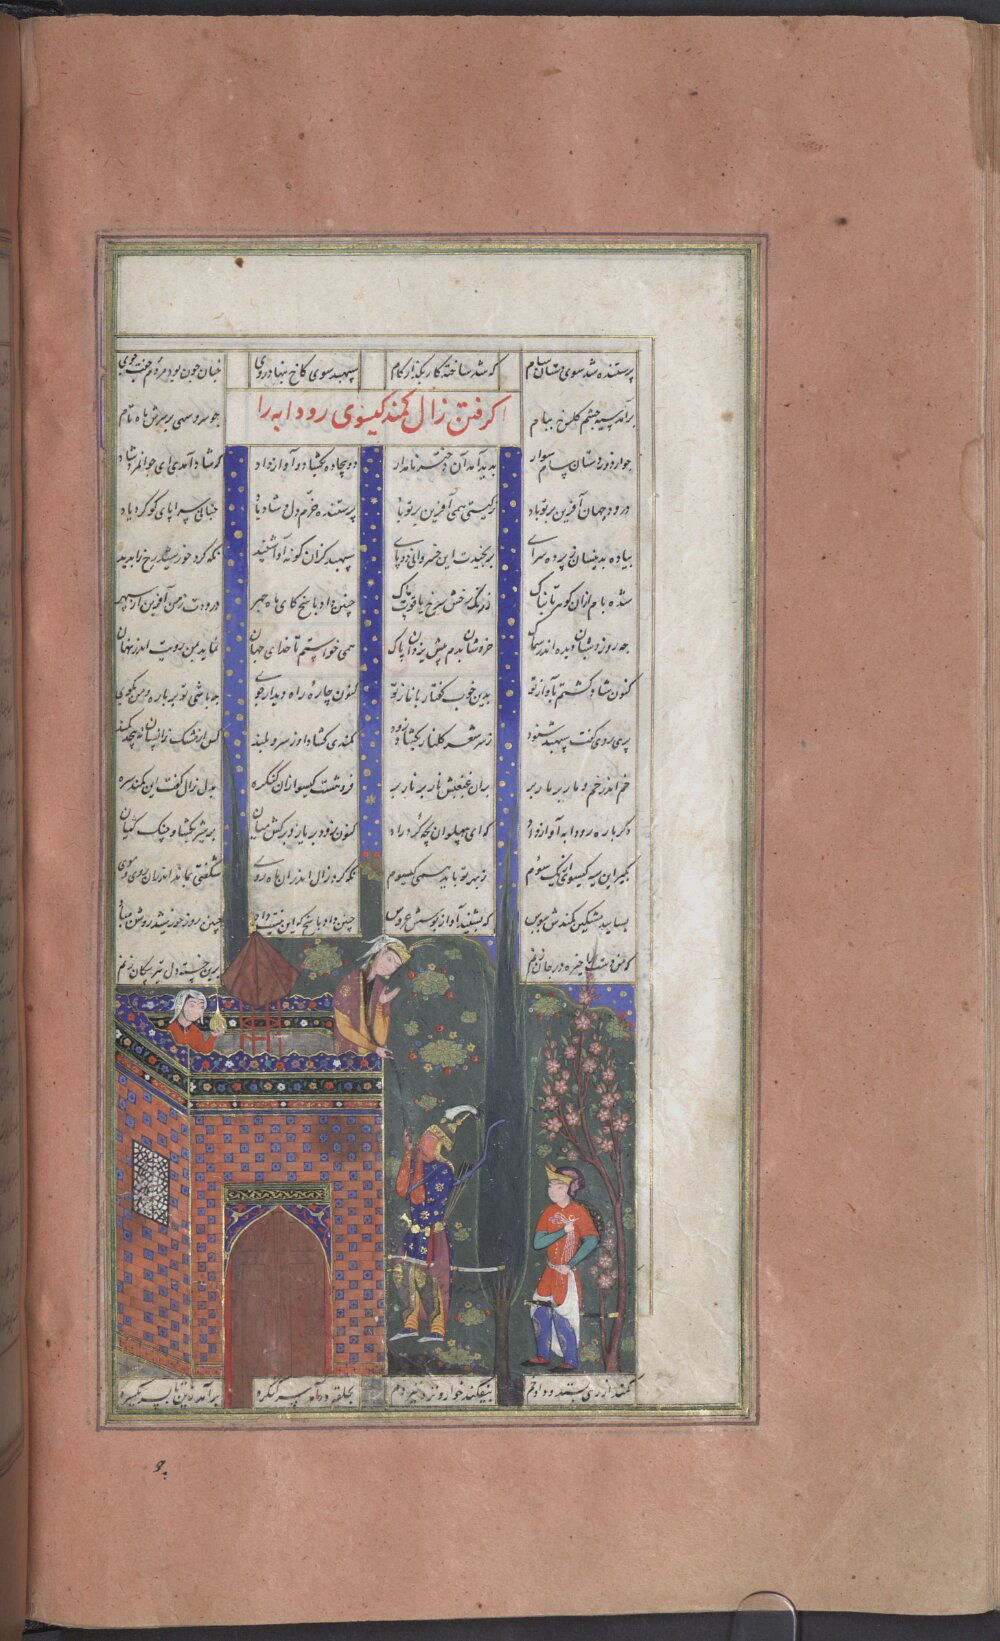 پرستنده شد سوی دستان سام که شد ساخته کار بگذار گام سپهبد سوی کاخ بنهاد روی چنان چون بود مردم جفت جوی
گرفتن زال کمند گیسوی رودابه را
برآمد سیه چشم گلرخ ببام چو سرو سهی بر سرش ماه تام
چو از دور دستان سام سوار پدید آمد آن دختر نامدار دو بیجاده بگشاد و آواز داد که شاد آمدی ای جوانمرد شاد
درود جهان آفرین بر تو باد ز گیتی همی آفرین بر تو باد پرستنده خرّم دل و شاد باد چنانی سراپای کو کرد یاد
پیاده بدینسان ز پرده سرای برنجیدت این خسروانی دو پای سپهبد کزان گونه آوا شنید نگه کرد خورشید رخ را بدید
شده بام ازان گوهر تابناک ز رنگ رخش سرخ یاقوت چنین داد پاسخ که ای ماه چهر درودت ز من آفرین از سپهر
چه روز و شبان دیده اندر سماک خروشان بدم پیش یزدان پاک همی خواستم تا خدای جهان نماید بمن رویت اندر نهان
کنون شاد گشتم بآواز تو بدین خوب گفتار با ناز تو کنون چاره راه دیدار جوی چه باشی تو بر باره و من بکوی
پری روی گفت سپهبد شنود ز سر شعر گلنار بگشاد زود کمندی گشاد او ز سرو بلند کس از مشک زانسان نپیچد کمند
خم اندر خم و مار بر مار بر بران غبغبش نار بر نار بر فروهشت گیسو ازان کنگره بدل زال گفت این کمند سره
دگر باره رودابه آواز داد که ای پهلوان بچه گرد راد کنون زود بر یاز و برکش میان بر شیر بگشا و چنگ کیان
بگیر این سیه گیسو از یک سوم ز بهر تو باید همی گیسوم نگه کرد زال اندران ماه روی شگفتی بماند اندران روی و موی
بسایید مشکین کمندش ببوس که بشنید آواز بوسش عروس چنین داد پاسخ که این نیست داد چنین روز خورشید روشن مباد
که من دست را خیره در جان زنم برین خسته دل تیر پیکان زنم
کمند از رهی بستد و داد خم بیفکند خوار و نزد نیز دم بحلقه درآمد سر کنگره برآمد ز بن تا بسر یکسره
چو